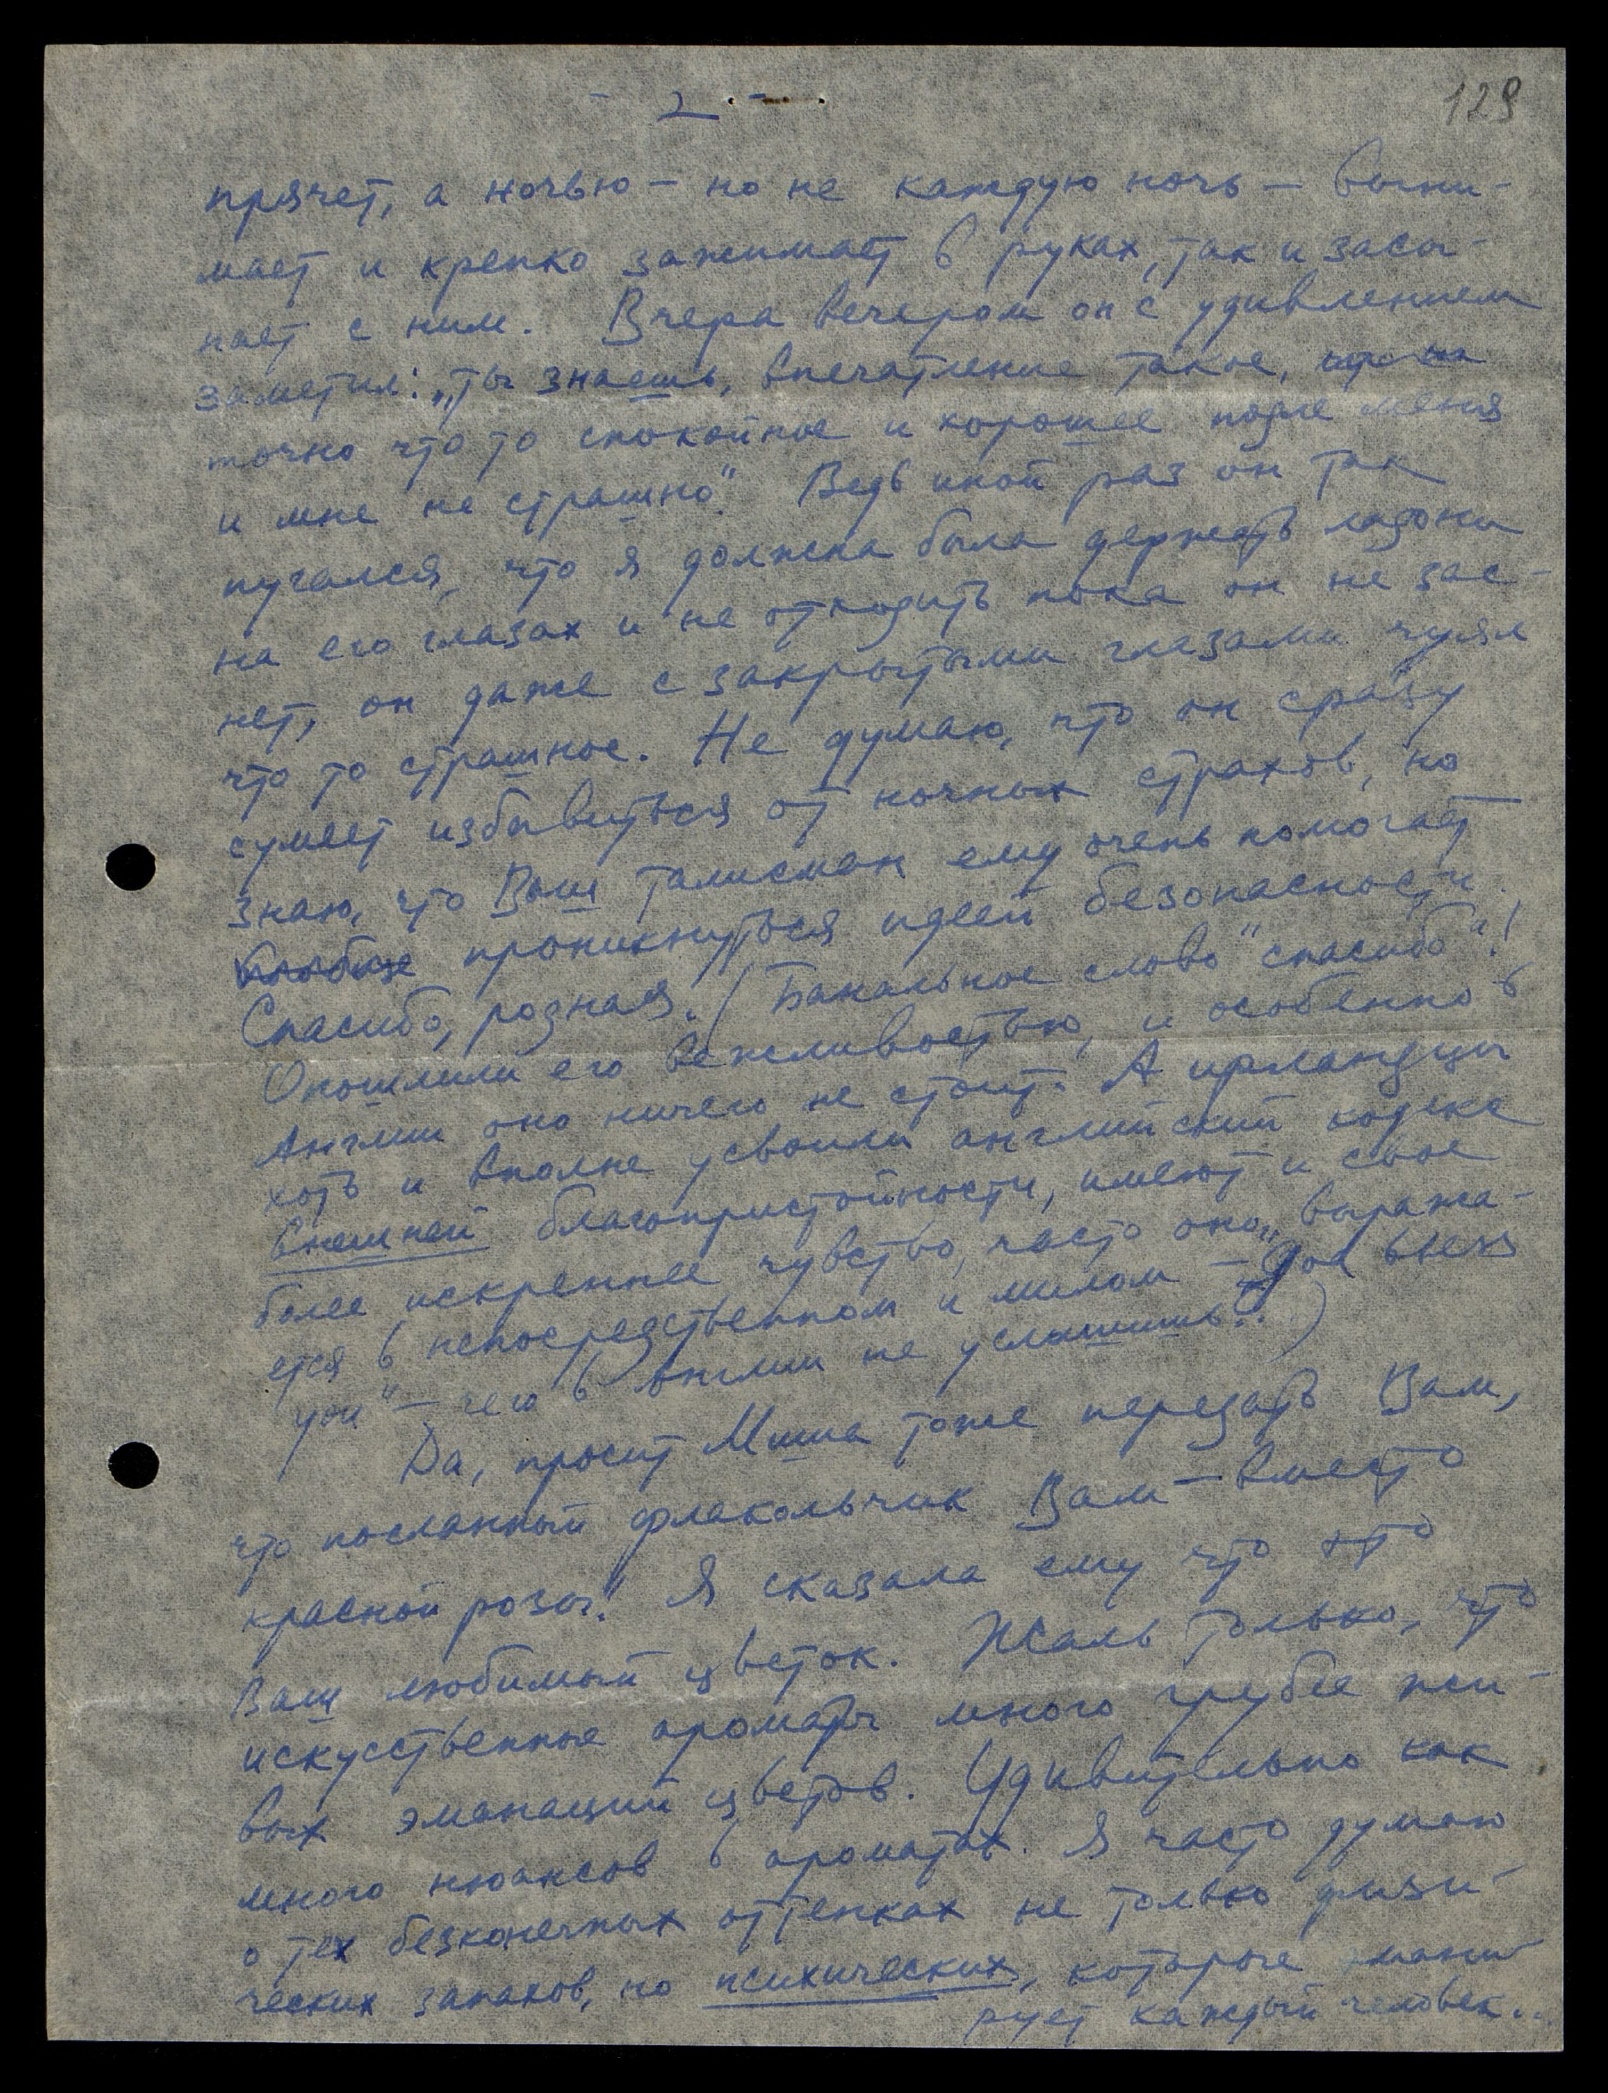 - 2 -
129
прячет, а ночью – но не каждую ночь – выни-
мает и крепко зажимает в руках, так и засы-
пает с ним. Вчера вечером он с удивлением
заметил: „ты знаешь, впечатление такое,
точно что то спокойное и хорошее подле меня
и мне не страшно". Ведь иной раз он так
пугался, что я должна была держать ладони
на его глазах и не отходить пока он не зас-
нет, он даже с закрытыми глазами чуял
что то страшное. Не думаю, что он сразу
сумеет избавиться от ночных страхов, но
знаю, что Ваш талисман ему очень помогает
проникнуться идеей безопасности.
Спасибо, родная. (Банальное слово "спасибо"!
Опошлили его вежливостью, и особенно в
Англии оно ничего не стоит. А ирландцы
хоть и вполне усвоили английский кодекс
внешней благопристойности, имеют и свое
более искреннее чувство, часто оно выража-
ется в непосредственном и милом – „God bless
you" – чего в Англии не услышишь...)
Да, просит Миша тоже передать Вам,
что посланный флакончик Вам – вместо
красной розы! Я сказала ему что это
Ваш любимый цветок. Жаль только, что
искусственные ароматы много грубее жи-
вых эманаций цветов. Удивительно как
много нюансов в ароматах. Я часто думаю
о тех безконечных оттенках не только физи-
ческих запахов, но психических, которые эмани-
рует каждый человек...